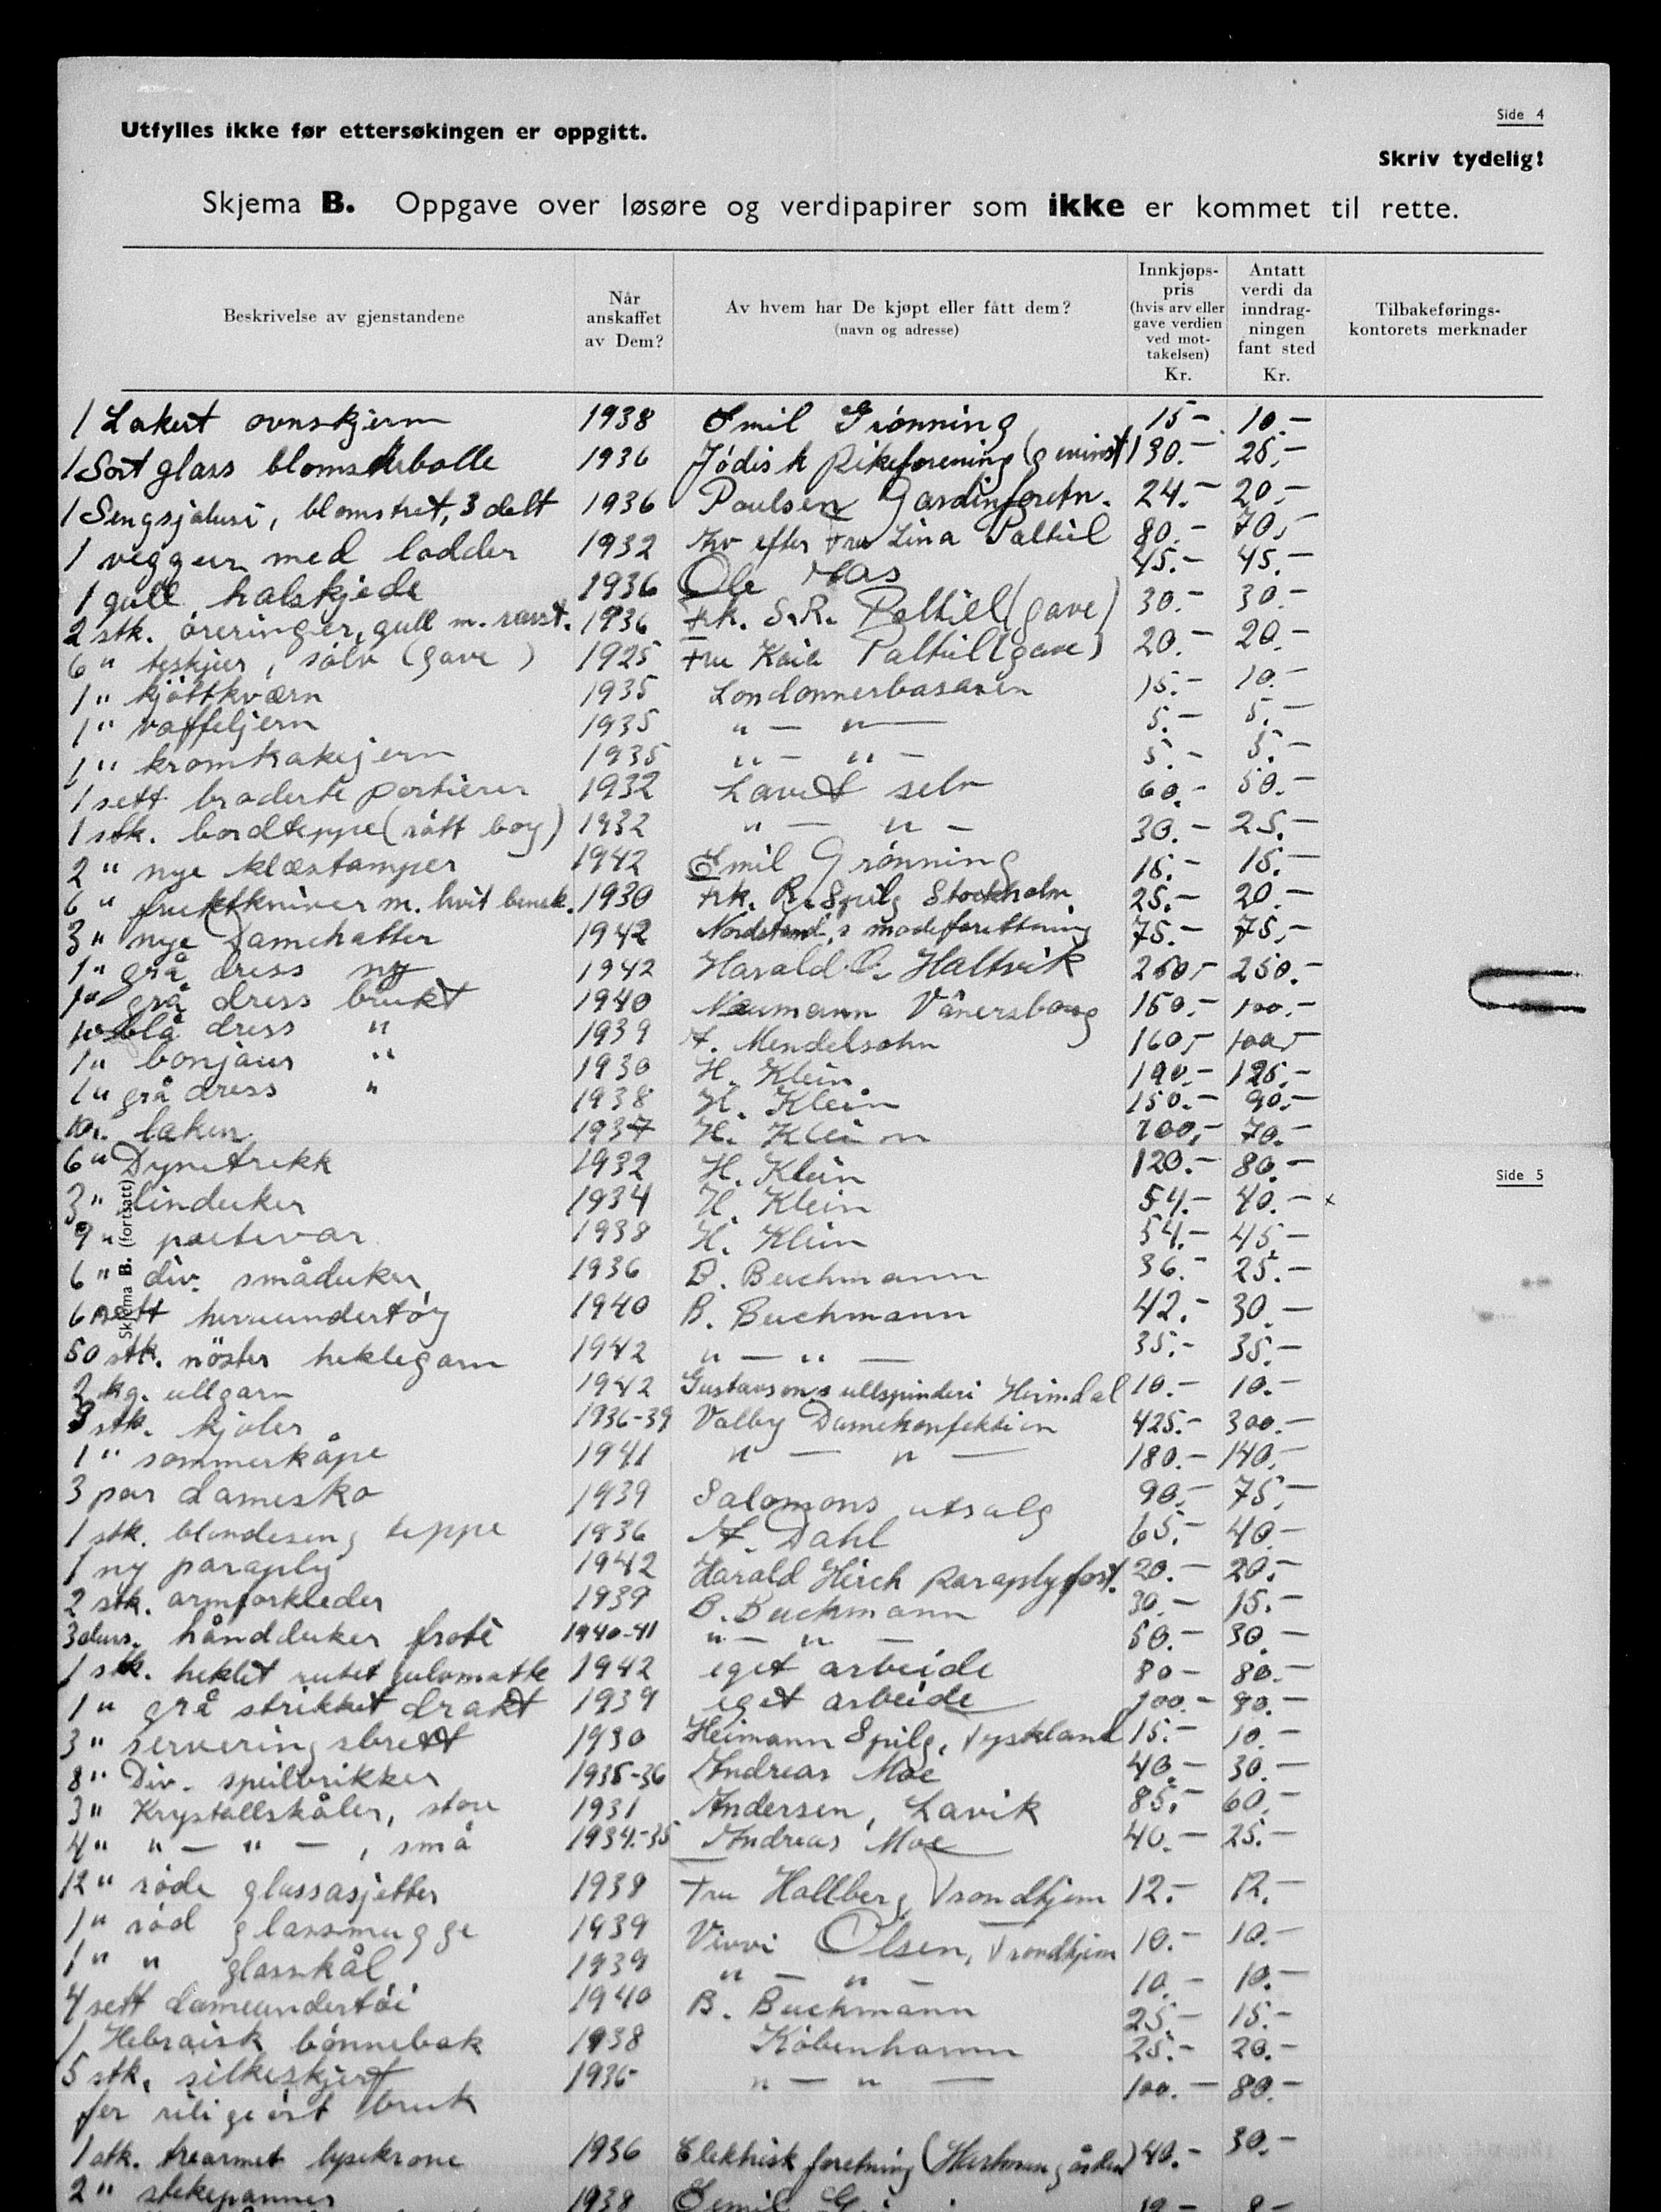 Side 4
Utfylles ikke før ettersøkingen er oppgitt.
Skriv tydelig!
Skjema B. Oppgave over løsøre og verdipapirer som ikke er kommet til rette.
Beskrivelse av gjenstandene
Når anskaffet av Dem?
Av hvem har De kjøpt eller fått dem? (navn og adresse)
Innkjøps-pris (hvis arv eller gave verdien ved mot-takelsen) Kr.
Antatt verdi da inndrag-ningen fant sted Kr.
Tilbakeførings-kontorets merknader
1 Lakert ovnskjerm 1938 Emil Grönning 15.- 10.-
1 Sort glass blomsterbolle 1936 Jödisk Pikeforening (gevinst) 30.- 25.-
1 Sengsjalusi, blomstret, 3 delt 1936 Poulsen Gardinforetn. 24.- 20.-
1 veggur med lodder 1932 Arv efter Fru Lina Paltiel 80.- 70.-
1 gull halskjede 1936 Ole Aas 45.- 45.-
2 stk. öreringer, gull m. 1936 Frk. S.R. Paltiel (gave) 30.- 30.-
6 " teskjeer, sölv (gave) 1925 Fru Kaia Paltiel (gave) 20.- 20.-
1 " kjöttkværn 1935 Londonnerbasaren 15.- 10.-
1 " vaffeljern 1935 " - " - 5.- 5.-
1 " kromkakejern 1935 " - " - 5.- 5.-
1 sett broderte portierer 1932 Lavet selv 60.- 50.-
1 stk. bordteppe (rått boy) 1932 " - " - 30.- 25.-
2 " nye klæstamper 1942 Emil Grönning 15.- 15.-
6 " fruktkniver m. hvit bensk. 1930 Frk. R. Spilg Stockholm 25.- 20.-
3 " nye Damehatter 1942 Nordstrand's modeforettning 75.- 75.-
1 " grå dress ny 1942 Harald O. Haltvik 250.- 250.-
1 " grå dress brukt 1940 Neumann Vänersborg 150.- 100.-
1 " blå dress " 1939 A. Mendelsohn 160.- 100.-
1 " bonjour " 1930 H. Klein 190.- 125.-
1 " grå dress " 1938 H. Klein 150.- 90.-
10 " laken 1937 H. Klein 100.- 70.-
6 " Dynetrekk 1932 H. Klein 120.- 80.-
Side 5
Skjema B. (fortsatt)
3 " linduker 1934 H. Klein 54.- 40.- x
9 " putevar 1938 H. Klein 54.- 45.-
6 " div. småduker 1936 B. Buchmann 36.- 25.-
6 sett herreundertöy 1940 B. Buchmann 42.- 30.-
50 stk. nöster heklegarn 1942 " - " - 35.- 35.-
2 kg. ullgarn 1942 Gustavsons ullspinderi Heimdal 10.- 10.-
stk. kjoler 1936-39 Valby Damekonfektion 425.- 300.-
1 " sommerkåpe 1941 " - " - 180.- 140.-
3 par damesko 1939 Salomons utsalg 90.- 75.-
1 stk. blondeseng teppe 1936 A. Dahl 65.- 40.-
1 ny paraply 1942 Harald Hirch paraplyforr. 20.- 20.-
2 stk. armforkleder 1939 B. Buchmann 30.- 15.-
3 duss. håndduker froté 1940-41 " - " - 50.- 30.-
1 stk. heklet rutet gulvmatte 1942 eget arbeide 80.- 80.-
1 " grå strikket drakt 1939 eget arbeide 100.- 90.-
3 " serveringsbrett 1930 Heimann Spilg, Tyskland 15.- 10.-
8 " Div. speilbrikker 1935-36 Andreas Moe 40.- 30.-
3 " Krystallskåler, store 1931 Andersen, Lavik 85.- 60.-
4 " " - " -, små 1934-35 Andreas Moe 40.- 25.-
12 " röde glassasjetter 1939 Fru Hallberg Trondhjem 12.- 12.-
1 " röd glassmugge 1939 Vivvi Olsen, Trondhjem 10.- 10.-
1 " " glasskål 1939 " - " - 10.- 10.-
4 sett dameundertöi 1940 B. Buchmann 25.- 15.-
1 Hebraisk bönnebok 1938 Köbenhavn 25.- 20.-
5 stk. silkeskjerf 1936 " - " - 100.- 80.-
for religiöst bruk
1 stk. trearmet lysekrone 1936 Elektrisk foretning (Hartmangården) 40.- 30.-
2 " stekepanner 1938 Emil